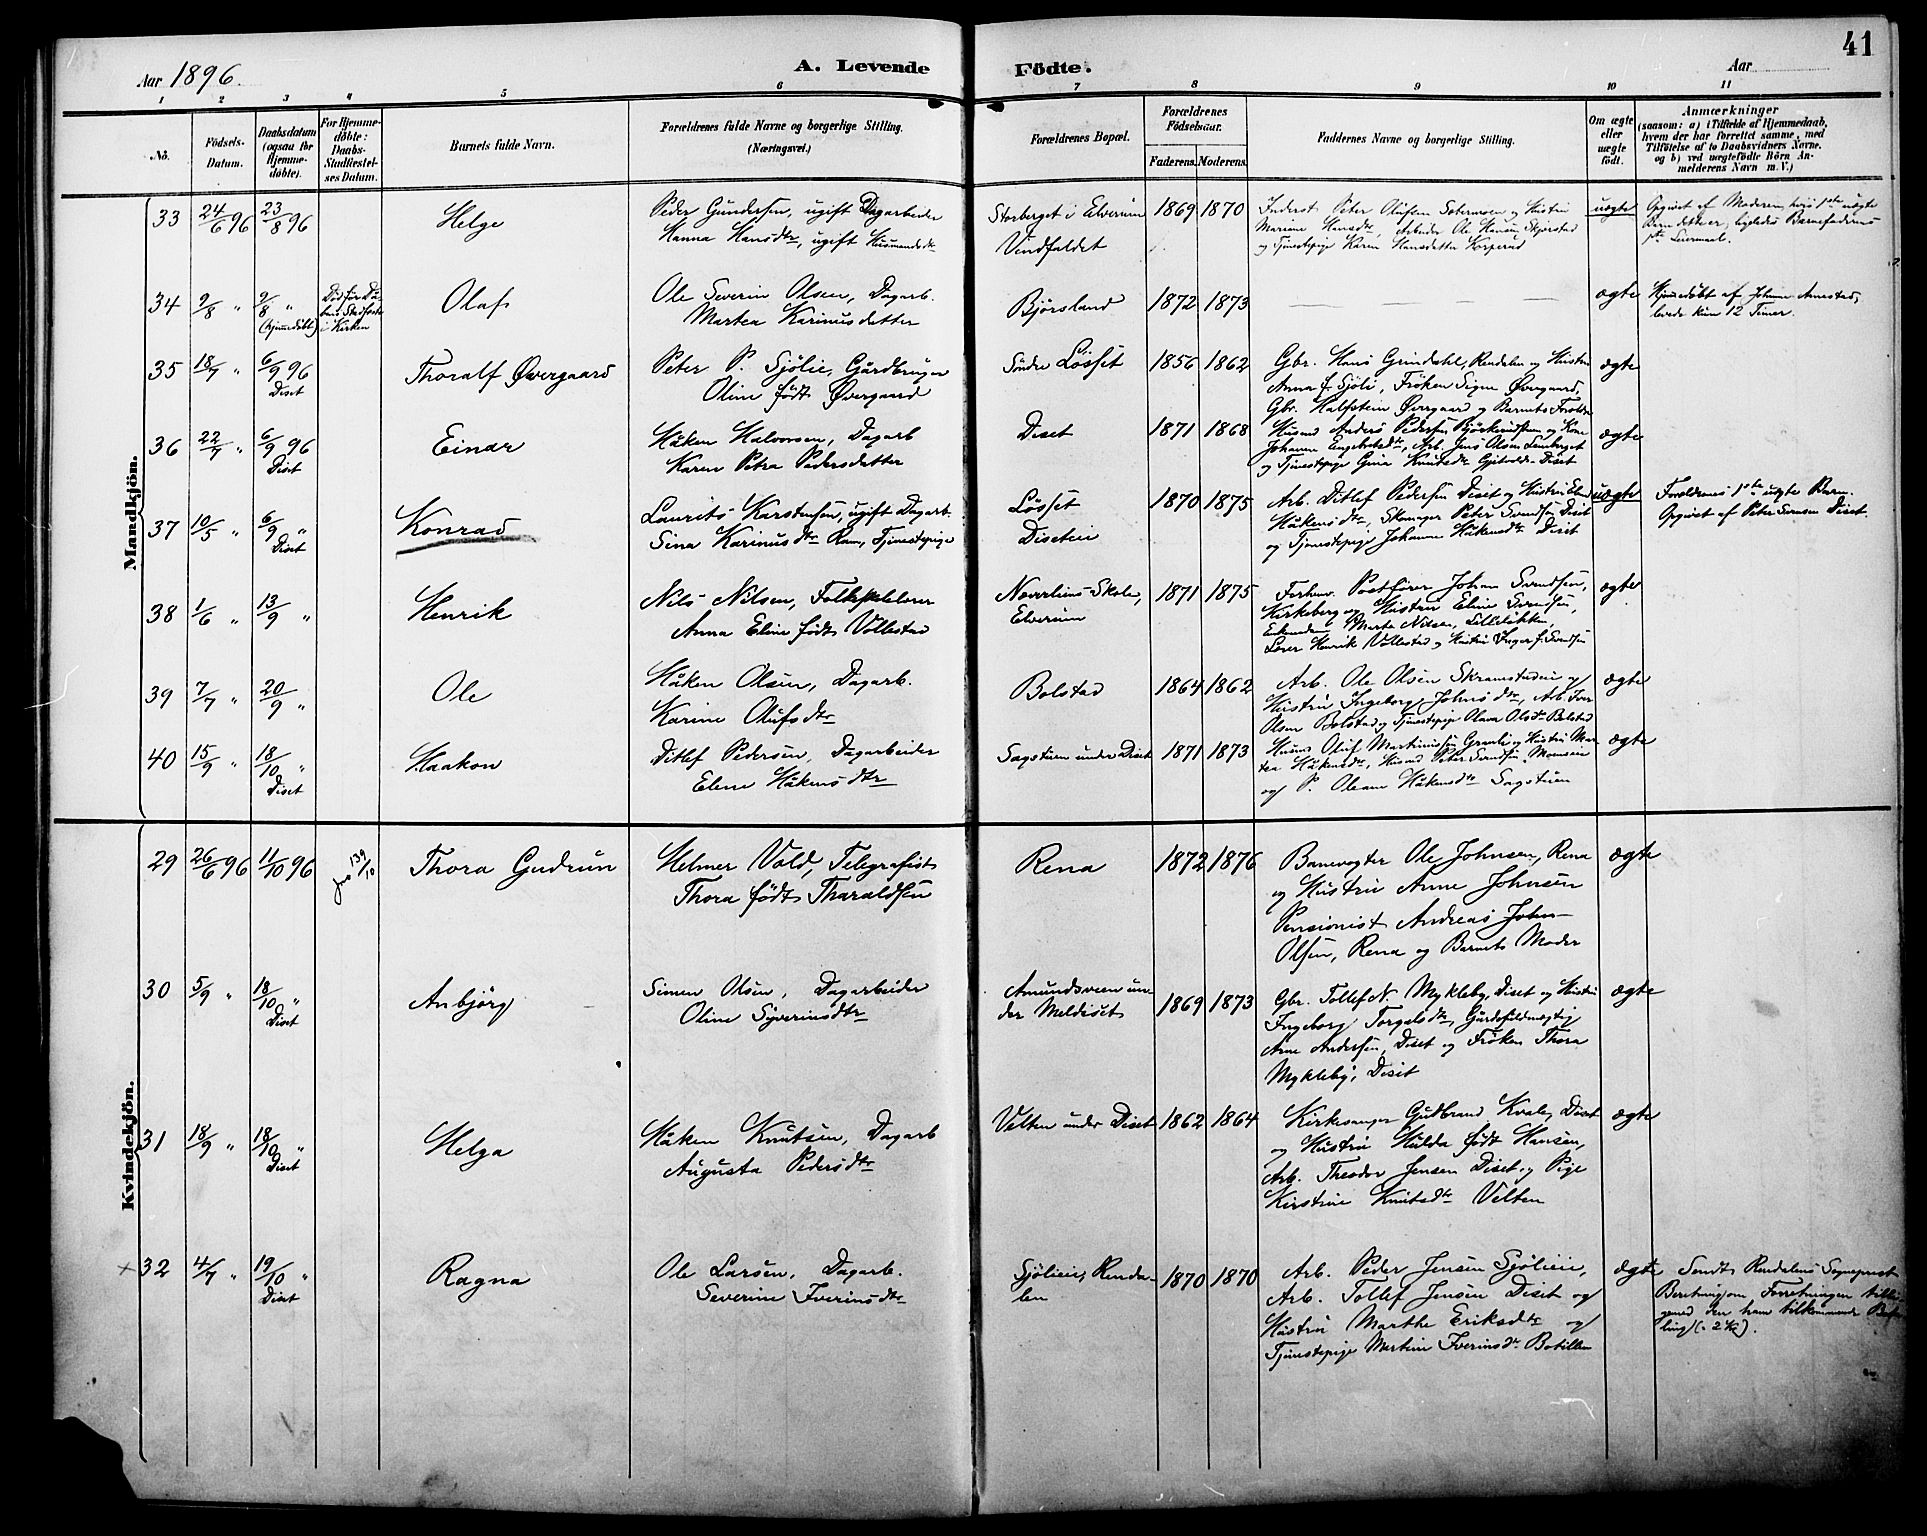 41
Aar 1896.
A. Levende
Födte.
Aar
1 2 3 4 5 6 7 8 9 10 11
Nö.
Födsels-
Datum.
Daabsdatum
(ogsaa for
Hjemme-
döbte).
For Hjemme-
döbte:
Daabs-
Stadfæstel-
ses Datum.
Barnets fulde Navn.
Forældrenes fulde Navne og borgerlige Stilling.
(Næringsvei.)
Forældrenes Bopæl.
Forældrenes
Födselsaar.
Faderens. Moderens.
Faddernes Navne og borgerlige Stilling.
Om ægte
eller
uægte
födt.
Anmærkninger
(saasom: a) i Tilfælde af Hjemmedaab,
hvem der har forrettet samme, med
Tilföielse af to Daabsvidners Navne,
og b) ved uægtefödte Börn An-
melderens Navn m. V.)
Mandkjön.
33 24/6 96 23/8 96 Helge
Peder Gundersen, ugift Dagarbeider
Hanna Hansdtr, ugift Husmandsdtr
Storberget i Elverum
Vindfaldet
1869 1870
Inderst Peter Olufsen Sætermoen og Hustru
Mariane Hansdtr, Arbeider Ole Hansen Skjærstad
og Tjenestepige Karen Hansdatter Korperud
uægte
Opgivet af Moderen, hvis 1ste uægte
Barn dette er, ligeledes Barnefaderens
1ste Leiermaal.
34 9/8 " 9/8 "
(hjemmedöbt)
Död før Då-
bens Stadfæst.
i Kirken
Olaf
Ole Severin Olsen, Dagarb.
Martea Karinusdatter
Bjørsland
1872 1873
— — — — —
ægte
Hjemmedöbt af Johanne Arnestad,
levede kun 12 Timer.
35 18/7 " 6/9 96
Diset
Thoralf Øvergaard
Peter P. Sjölie, Gårdbruger
Oline födt Øvergaard
Söndre Løsset
1856 1862
Gbr. Hans Grindahl, Rendalen og Hustru
Anna f. Sjöli, Fröken Signe Øvergaard,
Gbr. Halfstein Øvergaard og Barnets Foreldre
ægte
36 22/7 " 6/9 96
Diset
Einar
Håken Halvorsen, Dagarb
Karen Petra Pedersdatter
Diset
1871 1868
Husmd Anders Pedersen Bjørkeridsen og Kone
Johanne Engebretsdtr, Arb. Jens Olsen Lemberget
og Tjenestepige Gina Knutsdtr Gjetvold – Diset
ægte
37 10/5 " 6/9 "
Diset
Konrad
Laurits Karstensen, ugift Dagarb.
Sina Karinusdtr Ram, Tjenestepige
Løsset
Diseteie
1870 1875
Arb. Ditlef Pedersen Diset og Hustru Elen
Håkensdtr, Skomager Peter Svendsen Diset
og Tjenestepige Johanne Håkensdtr Diset
uægte
Foreldrenes 1ste uægte Barn.
Opgivet af Peter Svensen Diset.
38 1/6 " 13/9 " Henrik
Nils Nilsen, Folkskolelærer
Anna Eline födt Vollestad
Noverlien Skole,
Elverum
1871 1875
Forhenv. Postförer Johan Svendsen,
Kirkeberg og Hustru Eline Svendsen,
Enkemadam Marte Nilsen, Lillelökken,
Lærer Henrik Vollestad og Hustru Inger f. Svendsen
ægte
39 7/7 " 20/9 " Ole
Håken Olsen, Dagarb.
Karine Olufsdtr
Bolstad
1864 1862
Arb. Ole Olsen Skramstadeie og
Hustru Ingeborg Johnsdtr, Arb. Iver
Olsen Bolstad og Tjenestepige Olava Olsdtr Bolstad
ægte
40 15/9 " 18/10 "
Diset
Haakon
Ditlef Pedersen, Dagarbeider
Elene Håkensdtr
Sagstuen under Diset
1871 1873
Husmd Oluf Martinussen Granli og Hustru Mar-
tea Håkensdtr, Husmd Peter Svendsen Momoen
og P. Oleane Håkensdtr Sagstuen
ægte
Kvindekjön.
29 26/6 96 11/10 96
139/10
Thora Gudrun
Helmer Vold, Telegrafist
Thora födt Tharaldsen
Rena
1872 1876
Banevogter Ole Johnsen, Rena
og Hustru Anne Johnsen
Pensionist Andreas John-
Olsen, Rena og Barnets Moder
ægte
30 5/9 " 18/10 "
Diset
Anbjörg
Simen Olsen, Dagarbeider
Oline Syverinsdtr
Amundsveen un-
der Meldeset
1869 1873
Gbr. Tollef N. Mykleby, Diset og Hustru
Ingeborg Torgalsdtr, Gårdsfuldmægtig
Arne Andersen, Diset og Fröken Thora
Mykleby, Diset
ægte
31 18/9 " 18/10 "
Diset
Helga
Håken Knutsen, Dagarb
Augusta Pedersdtr
Velten under Diset
1862 1864
Kirkesanger Gudbrand Kvale, Diset
og Hustru Hulda födt Hansen,
Arb. Theodor Jensen Diset og Pige
Kirstine Knutsdtr Velten
ægte
+ 32 4/7 " 19/10 "
Diset
Ragna
Ole Larsen, Dagarb.
Severine Iverinsdtr
Sjölieie, Renda-
len
1870 1870
Arb. Peder Jensen Sjölieie,
Arb. Tollef Jensen Diset og
Hustru Marthe Eriksdtr og
Tjenestepige Martine Iverinsdtr Botillen
ægte
Sendt Rendalens Sogneprest
Beretning om Forretningen tilli-
gemed den ham tilkommende Beta-
ling (: 2 Kr).